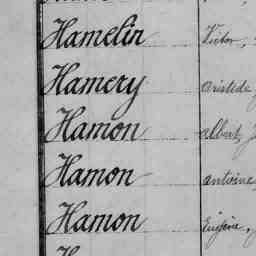 Hamelin Victor,
Hamery Aristide,
Hamon Albert, J
Hamon Antoine,
Hamon Eugène,